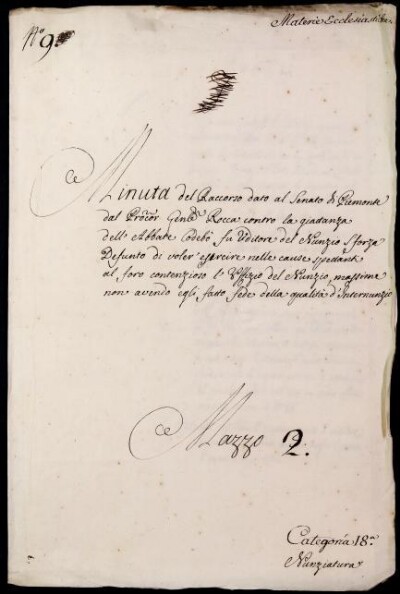 Materie Ecclesiastiche
N.º 9
Minuta del Raccorso dato al Senato di Piemonte
dal Procor Genle Rocca contro la giattanza
dell'Abbate Codebò fu Uditore del Nunzio Sforza
Defunto di voler esercire nelle cause spettanti
al foro contenzioso l'Uffizio del Nunzio, massime
non avendo egli fatto fede della qualità d'Internunzio
Mazzo 2.
Categoria 18.a
Nunziatura